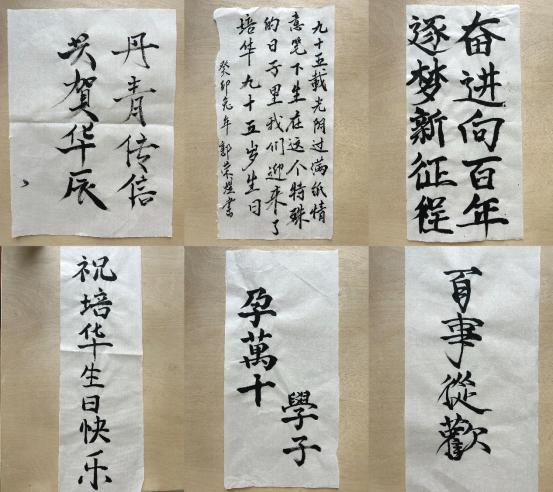 丹青传信
共贺华辰
九十五載光阴过满纸情
意笔下生在这个特殊
的日子里我们迎来了
培华九十五岁生日
癸卯元年 郭荣煜書
奋进向百年
逐梦新征程
祝培华生日快乐
孕萬十
學子
百事從歡